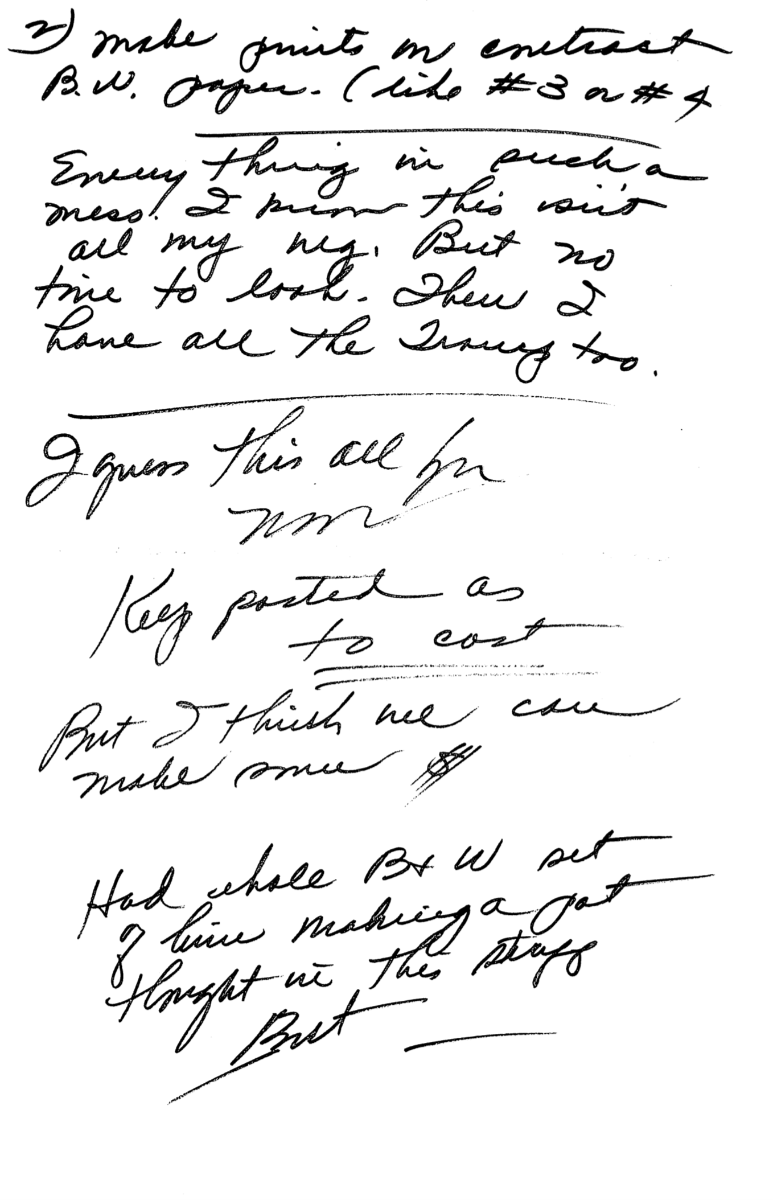 2) make prints on contrast
B.W. paper. (like #3 or #4
Every thing in such a
mess. I know this isn't
all my neg. But no
time to look. Then I
have all the Transy too.
I guess this all for
now
Keep posted as
to cost
But I think we can
make some $
Had whole B+W set
of him making a pot
thought in this stuff
But